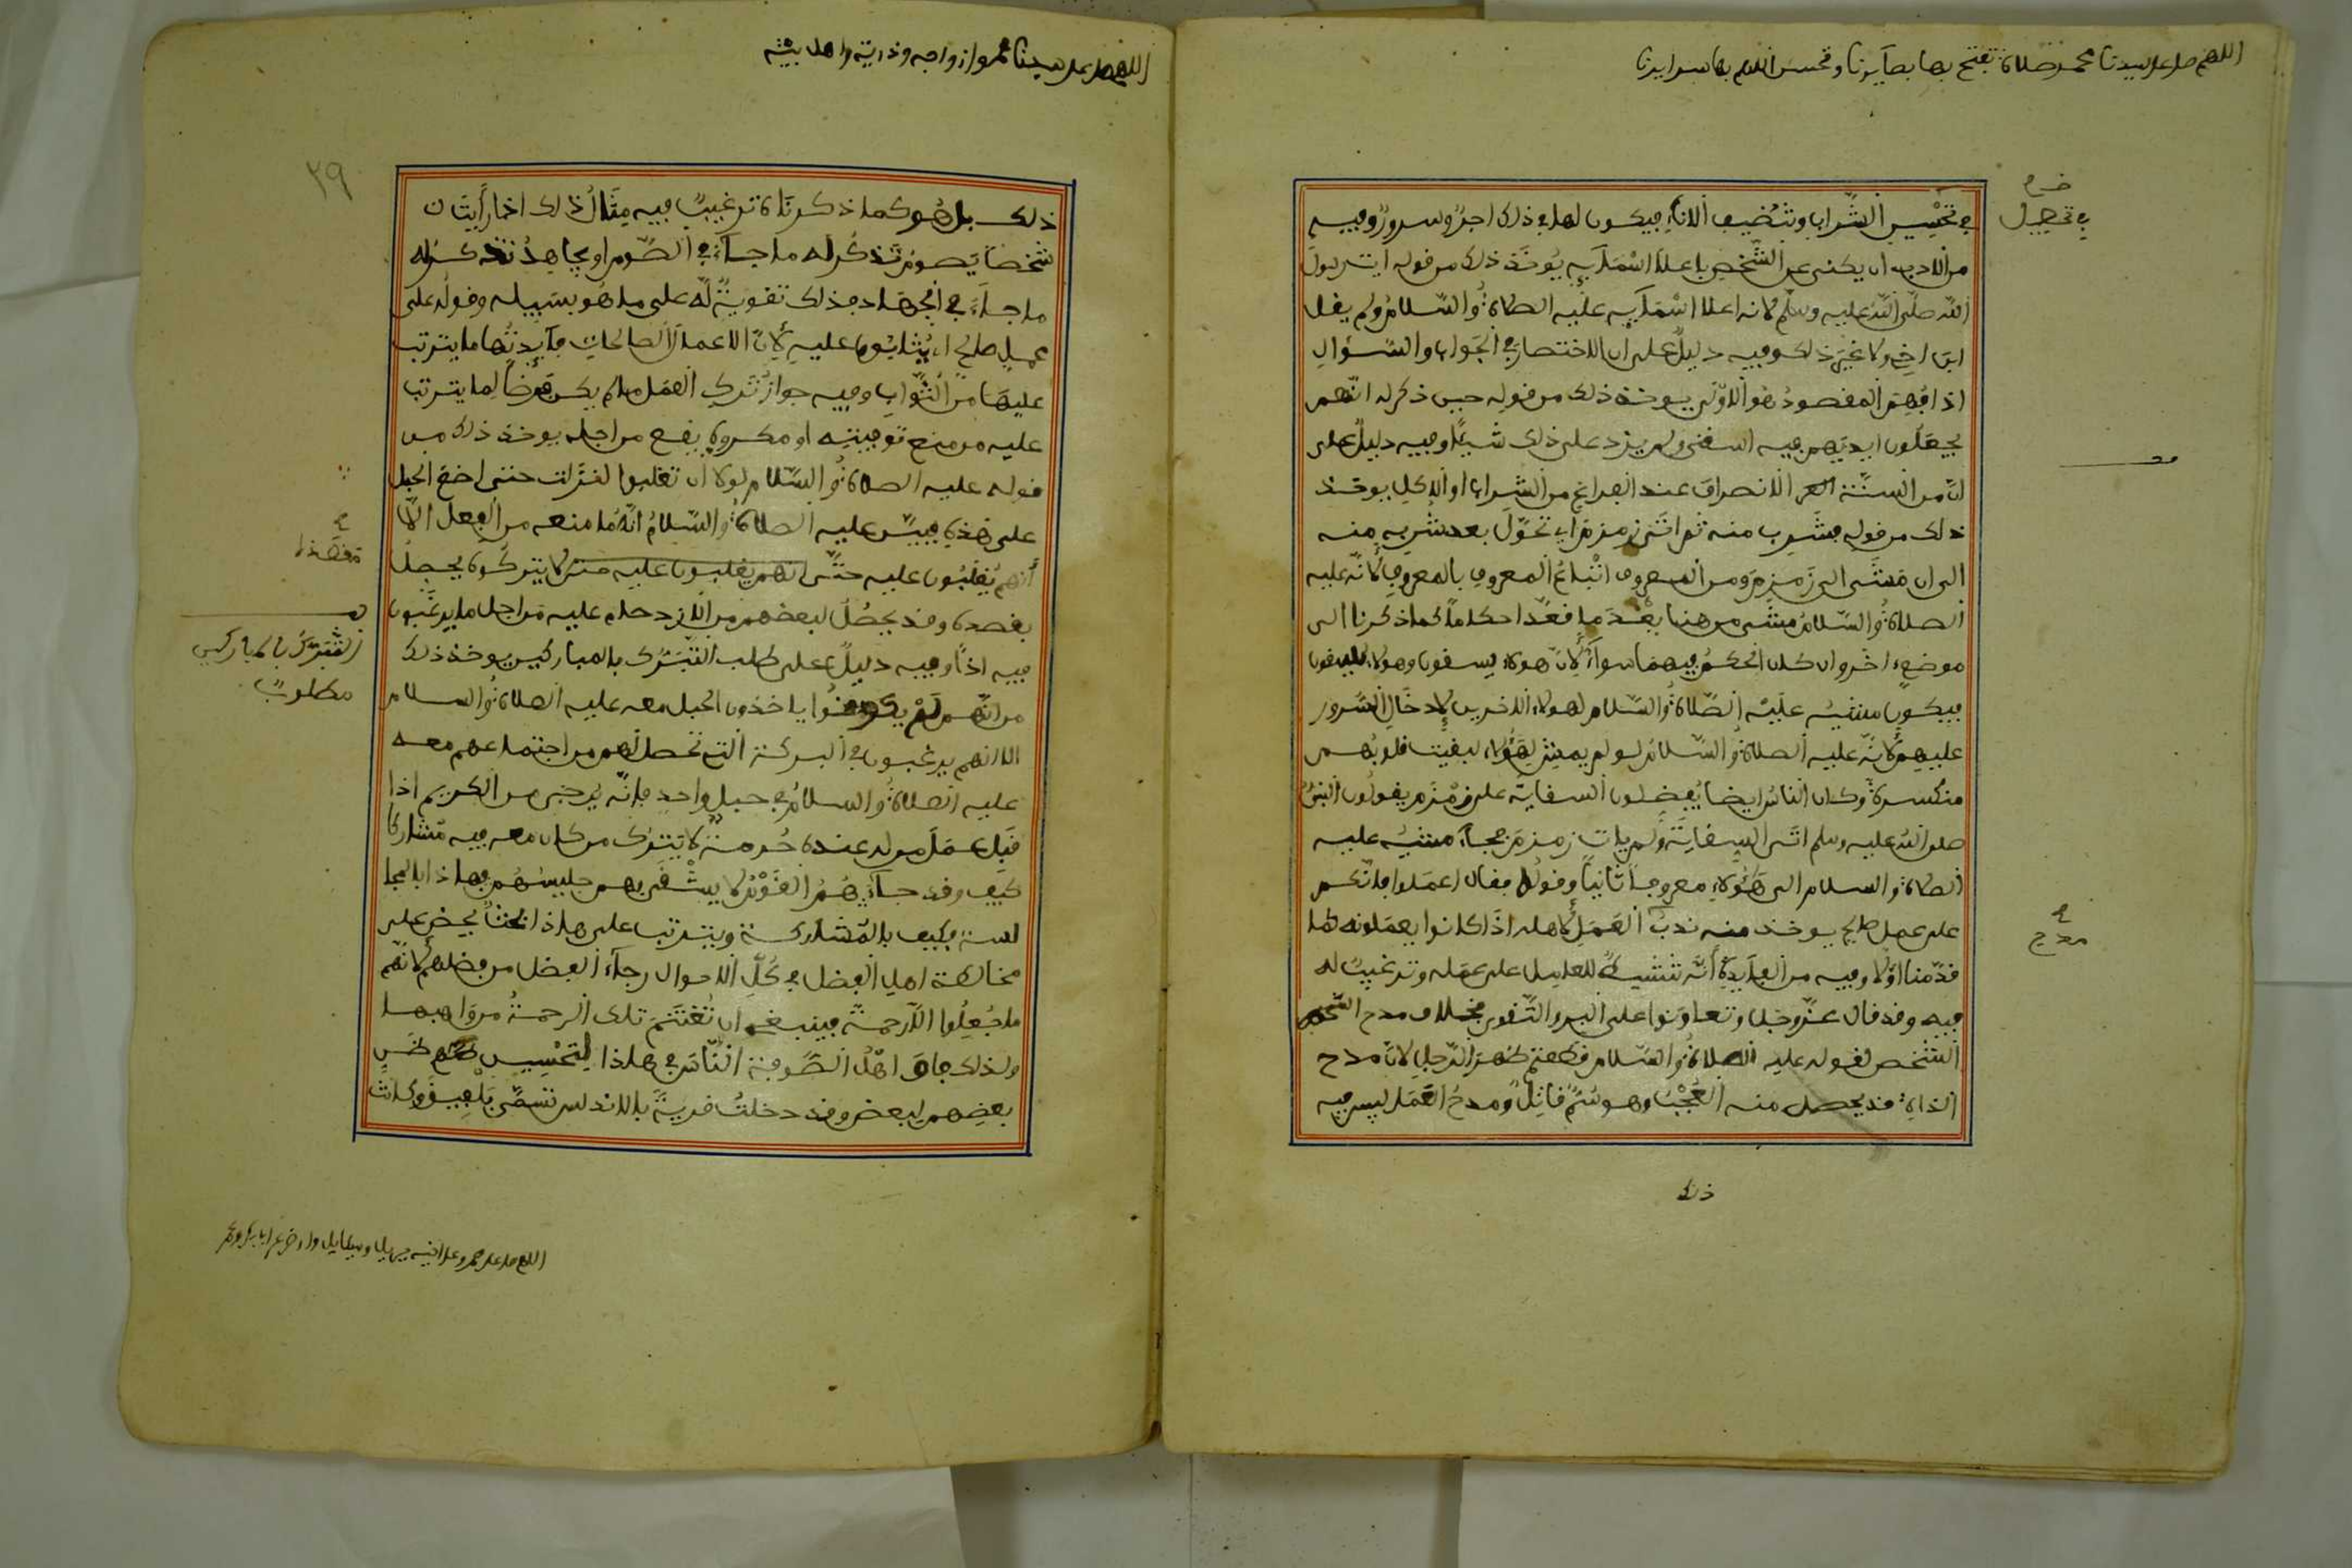 اللهم صل على سيدنا محمد صلاة تفتح بها بصائرنا وتحسن اللهم بها سرايرنا
في تحسين الشراب وتنضيف الاناء فيكون لهم في ذلك اجر وسرور وفيه
من الادب ان يكنى عن الشخص باعلا اسمايه يوخذ ذلك من قوله ان رسول
الله صلى الله عليه وسلم لانه اعلا اسمايه عليه الصلاة والسلام ولم يقل
ابن اخي ولا غير ذلك وفيه دليل على ان الاختصار في الجواب والسؤال
اذا فهم المقصود هو الاولى يوخذ ذلك من قوله حين ذكر له انهم
يجعلون ايديهم فيه اسقني ولم يزد على ذلك شيئا وفيه دليل على
ان من السنة الانصراف عند الفراغ من الشراب او الاكل يوخذ
ذلك من قوله فشرب منه ثم اتى زمزم اي تحول بعد شربه منه
الى ان مشى الى زمزم ومن المعروف اتباع المعروف بالمعروف لانه عليه
الصلاة والسلام مشى من هنا بعد ما قعد احكاما كما ذكرنا الى
موضع اخر وان كان الحكم فيهما سواء لان هولاء يسقون وهولاء يسقون
فيكون مشيه عليه الصلاة والسلام لهولاء الاخرين لادخال السرور
عليهم لانه عليه الصلاة والسلام لو لم يمش لهؤلاء لبقيت قلوبهم
منكسرة وكان الناس ايضا يفضلون السقاية على زمزم يقولون النبي
صلى الله عليه وسلم اتى السقاية ولم يات زمزم فجاء مشيه عليه
الصلاة والسلام الى هؤلاء معروفا ثانيا وقوله فقال اعملوا فانكم
على عمل صالح يوخذ منه ندب العمل لاهله اذا كانوا يعملونه كما
قدمنا اولا وفيه من الفايدة انه تنشيط للعامل على عمله وترغيب له
فيه وقد قال عز وجل وتعاونوا على البر والتقوى بخلاف مدح
الشخص لقوله عليه الصلاة والسلام قطعتم ظهر الرجل لان مدح
الذات قد يحصل منه العجب وهو سم قاتل ومدح العمل ليس فيه
ذلك
في تحصيل
في
مدح
اللهم صل على سيدنا محمد وازواجه وذريته واهل بيته
٢٩
ذلك بل هو كما ذكرناه ترغيب فيه مثال ذلك اذا رايت
شخصا يصوم تذكر له ما جاء في الصوم او يجاهد تذكر له
ما جاء في الجهاد فذلك تقوية له على ما هو بسبيله وقوله على
عمل صالح اي يثابون عليه لان الاعمال الصالحات فايدتها ما يترتب
عليها من الثواب وفيه جواز ترك العمل ما لم يكن فرضا لما يترتب
عليه من منع توفيته او مكروه يقع من اجله يوخذ ذلك من
قوله عليه الصلاة والسلام لولا ان تغلبوا لنزلت حتى اضع الحبل
على هذه فبين عليه الصلاة والسلام انه ما منعه من الفعل الا
انهم يغلبون عليه حتى انهم يغلبون عليه حتى لا يتركوه يجعل
بقصده وقد يحصل لبعضهم من الازدحام عليه من اجل ما يرغبون
فيه اذا وفيه دليل على طلب التبرك بالمباركين يوخذ ذلك
من انهم لم يكونوا ياخذون الحبل معه عليه الصلاة والسلام
الا انهم يرغبون في البركة التي تحصل لهم من اجتماعهم معه
عليه الصلاة والسلام في حبل واحد فانه يرجى من الكريم اذا
قبل عمل من له عنده حرمة لا يترك من كان معه فيه مشاركا
كيف وقد جاء هم القوم لا يشقى بهم جليسهم فهاذا بالمجا
لسة فكيف بالمشاركة ويترتب على هاذا الحث يحض على
مخالطة اهل الفضل في كل الاحوال رجاء الفضل من فضلهم لانهم
ما جعلوا الا رحمة فينبغي ان تغتنم تلك الرحمة من واهبها
ولذلك فاق اهل الصوفية الناس في هاذا لتحسين ظن
بعضهم لبعض وقد دخلت قرية بالاندلس تسمى بلفيق وكانت
تفضلا
ف
التبرك بالمباركين
مطلوب